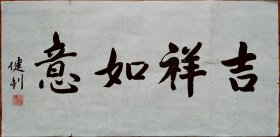 吉祥如意
健利